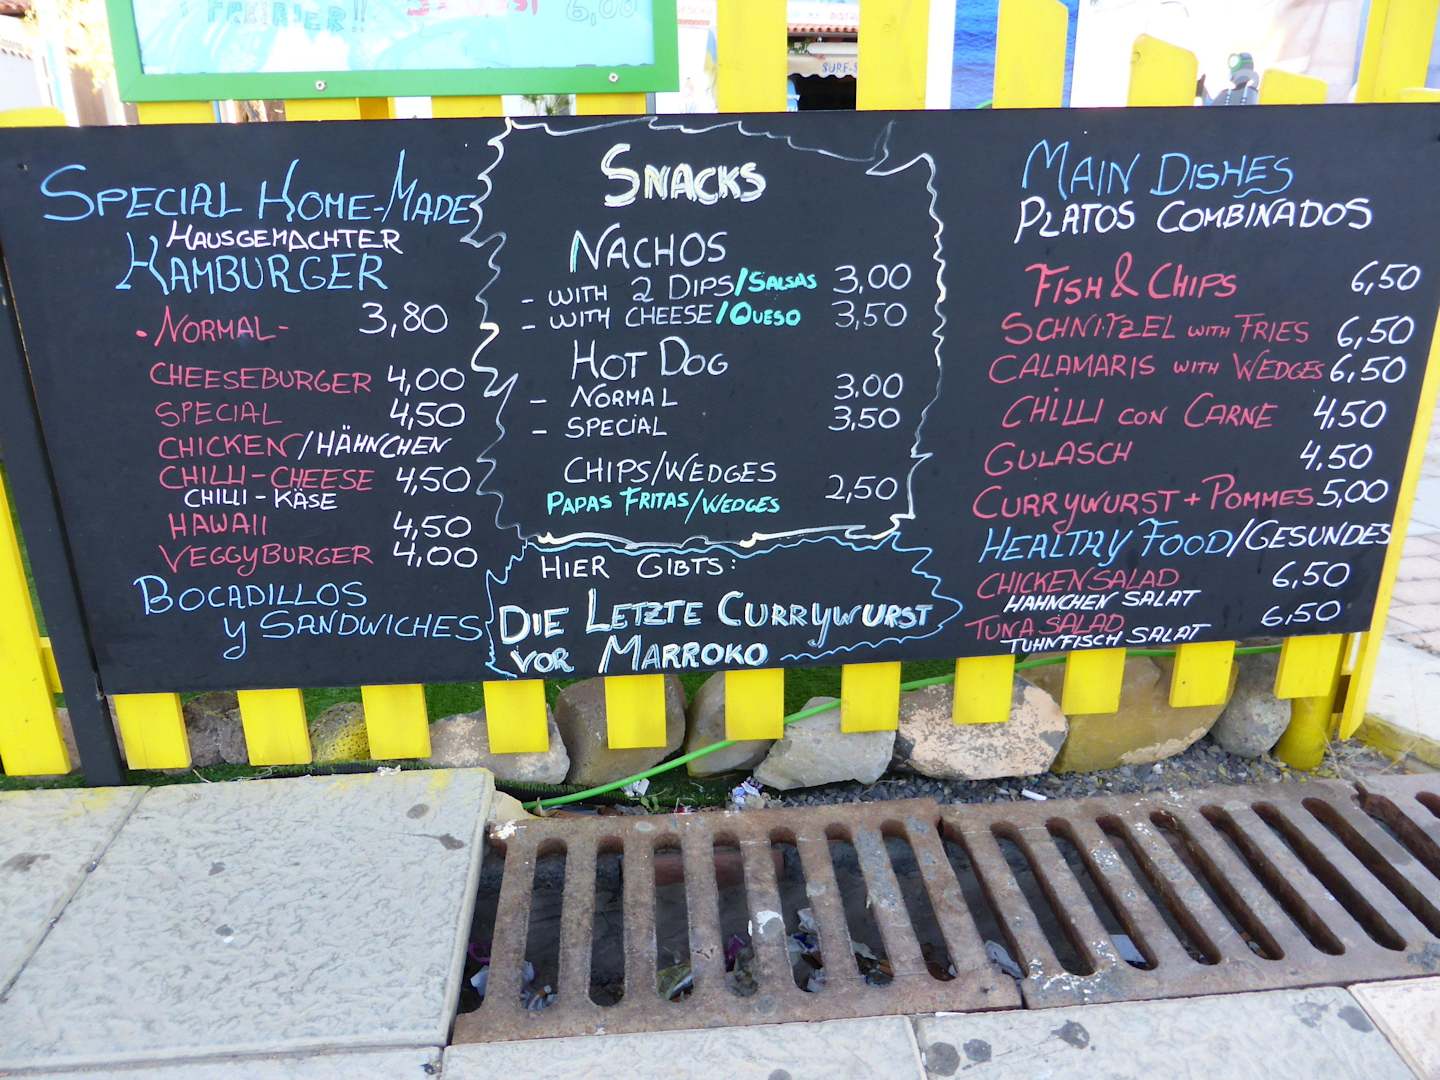 6,00
SURF-S
SPECIAL HOME-MADE
HAUSGEMACHTER
HAMBURGER
• NORMAL- 3,80
CHEESEBURGER 4,00
SPECIAL 4,50
CHICKEN/HÄHNCHEN
CHILLI-CHEESE 4,50
CHILLI-KÄSE
HAWAII 4,50
VEGGYBURGER 4,00
BOCADILLOS
y SANDWICHES
SNACKS
NACHOS
- WITH 2 DIPS/SALSAS 3,00
- WITH CHEESE/QUESO 3,50
HOT DOG
- NORMAL 3.00
- SPECIAL 3,50
CHIPS/WEDGES
PAPAS FRITAS/WEDGES 2,50
HIER GIBTS:
DIE LETZTE CURRYWURST
VOR MARROKO
MAIN DISHES
PLATOS COMBINADOS
FISH & CHIPS 6,50
SCHNITZEL WITH FRIES 6,50
CALAMARIS WITH WEDGES 6,50
CHILLI CON CARNE 4,50
GULASCH 4,50
CURRYWURST + POMMES 5,00
HEALTHY FOOD/GESUNDES
CHICKEN SALAD 6,50
HÄHNCHEN SALAT
TUNA SALAD 6,50
TUHNFISCH SALAT